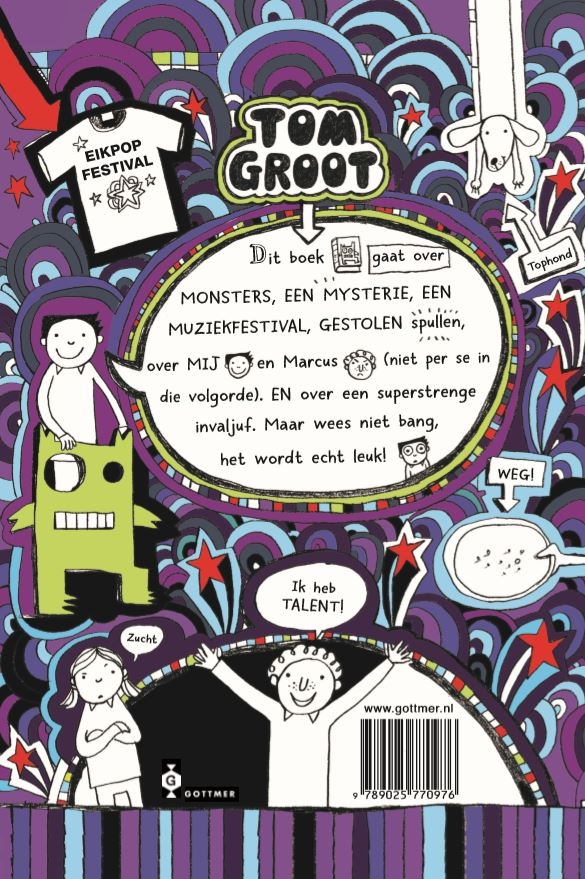 EIKPOP
FESTIVAL
TOM
GROOT
Tophond
Dit boek gaat over
MONSTERS, EEN MYSTERIE, EEN
MUZIEKFESTIVAL, GESTOLEN spullen,
over MIJ en Marcus (niet per se in
die volgorde). EN over een superstrenge
invaljuf. Maar wees niet bang,
het wordt echt leuk!
WEG!
Ik heb
TALENT!
Zucht
www.gottmer.nl
G GOTTMER
9 789025 770976